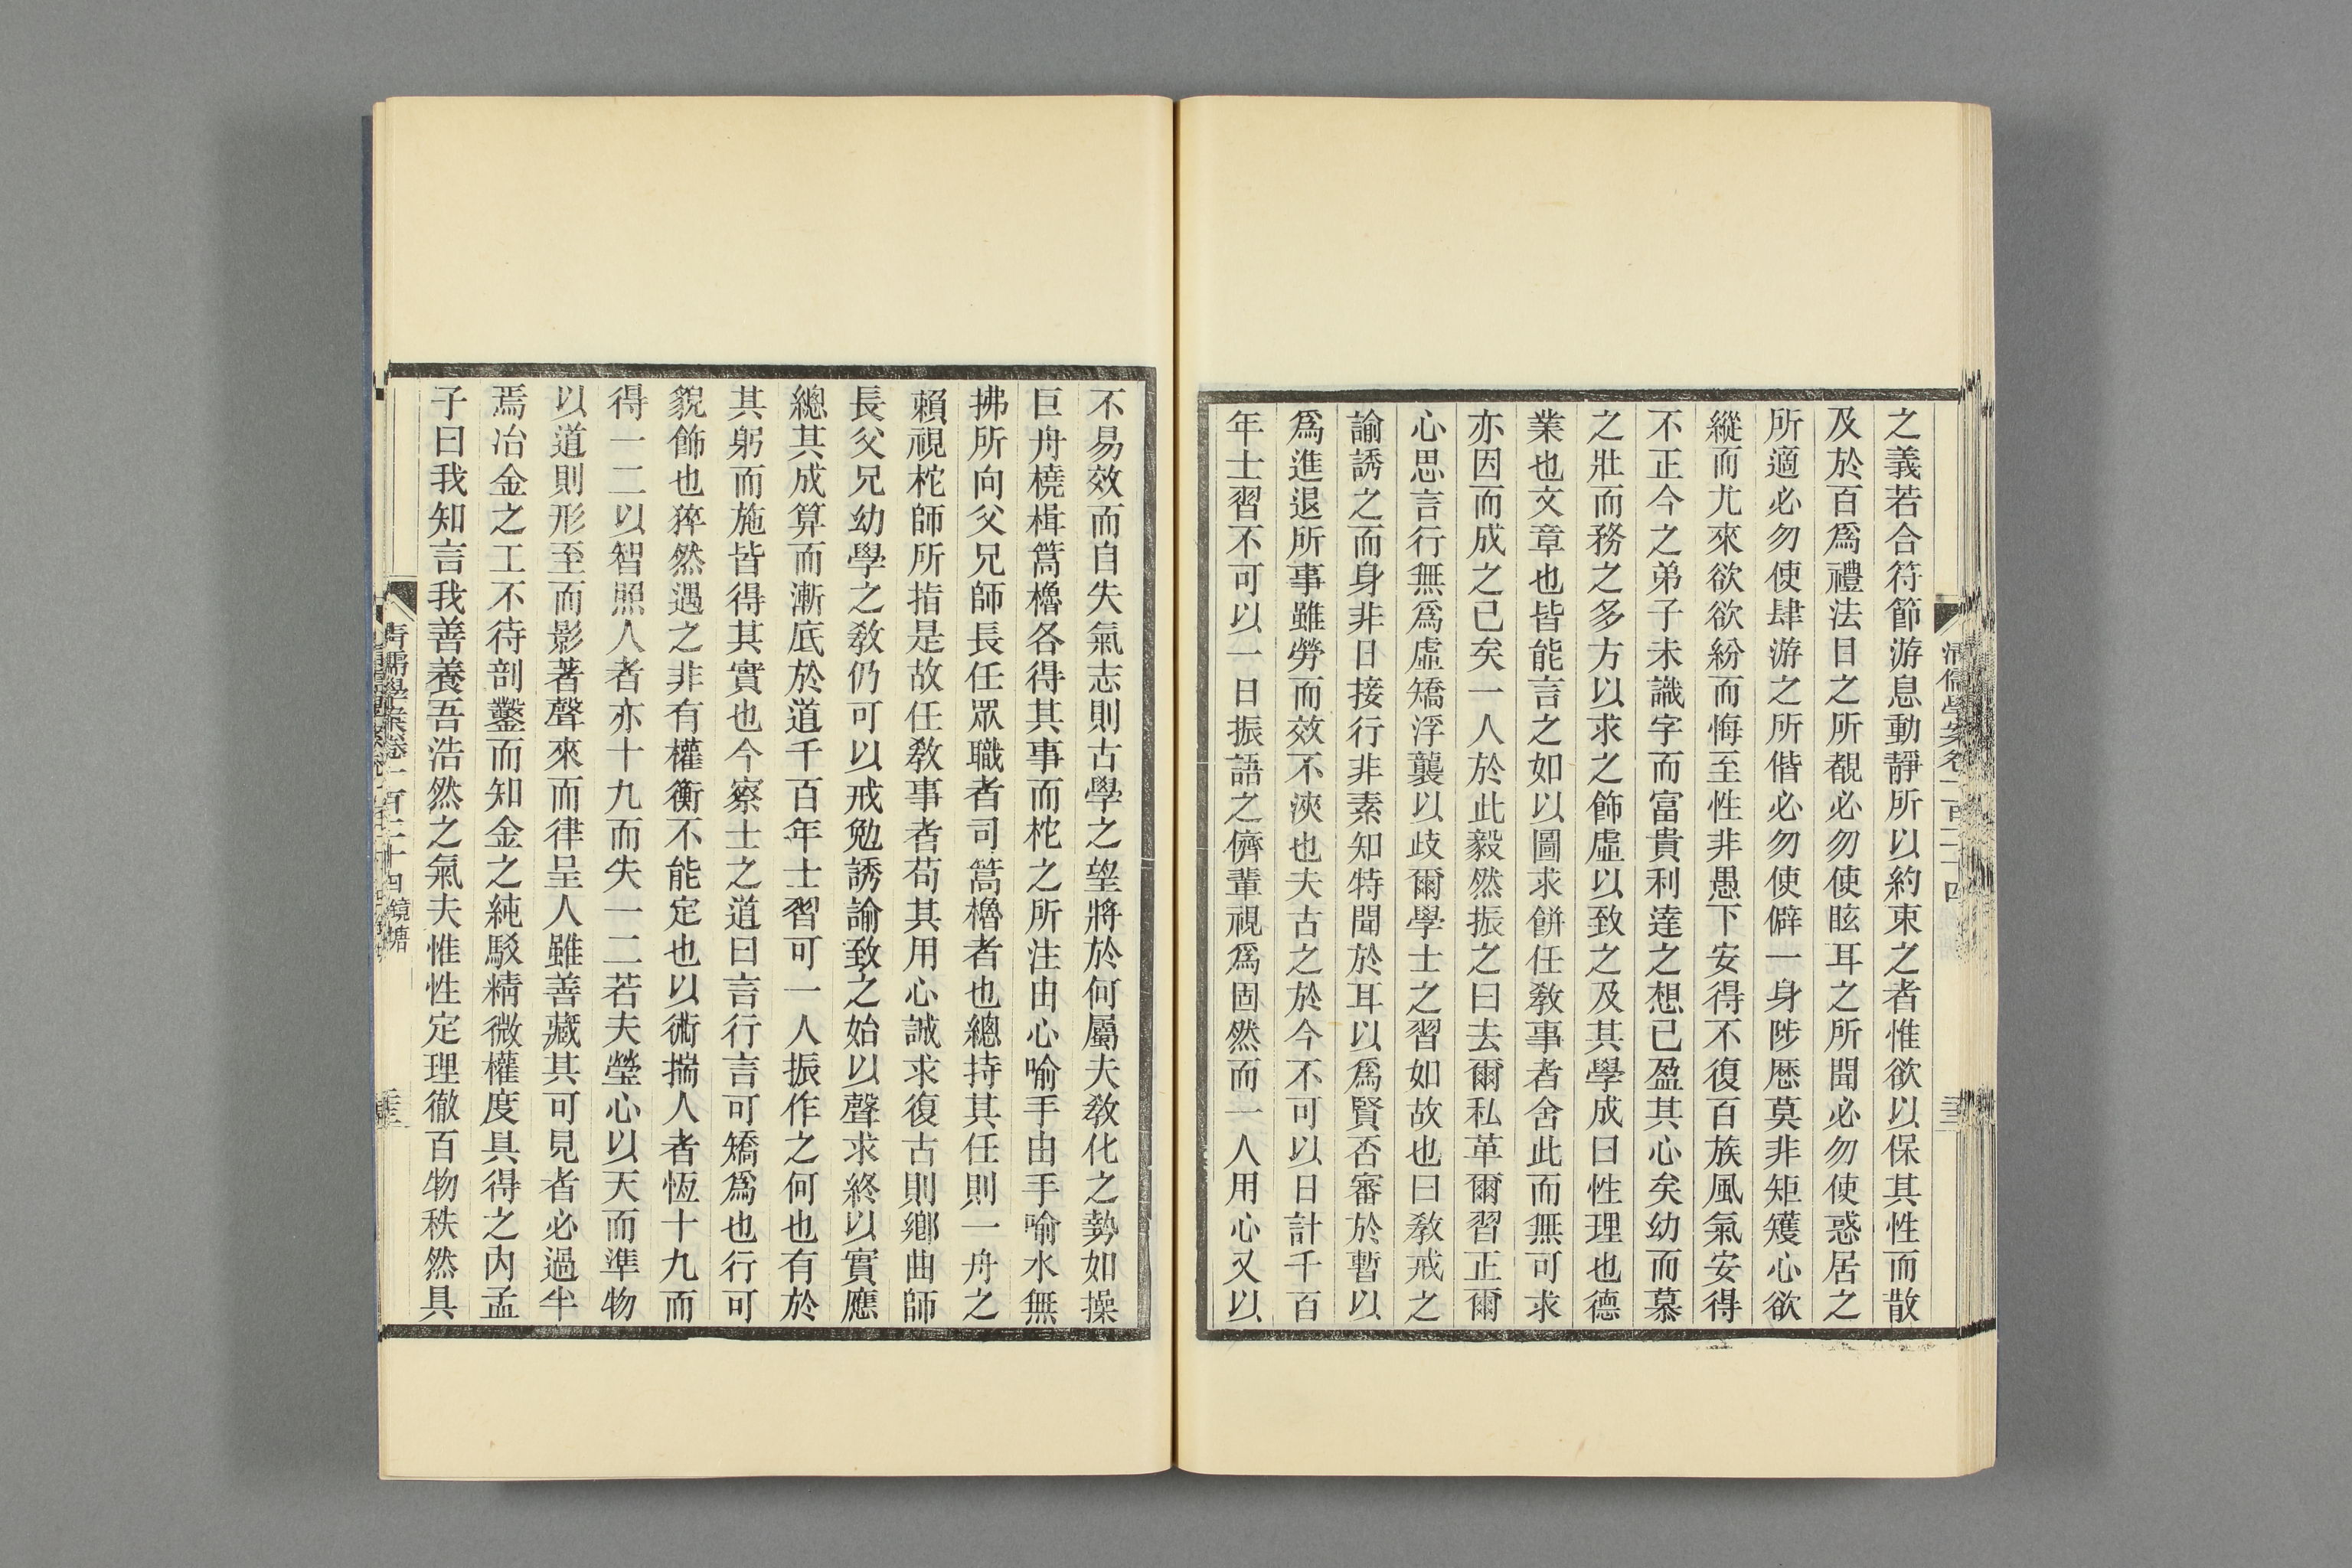 之義若合符節游息動靜所以約束之者惟欲以保其性而散
及於百爲禮法目之所覩必勿使眩耳之所聞必勿使惑居之
所適必勿使肆游之所偕必勿使僻一身陟歷莫非矩矱心欲
縱而尤來欲欲紛而悔至性非愚下安得不復百族風氣安得
不正今之弟子未識字而富貴利達之想已盈其心矣幼而慕
之壯而務之多方以求之飾虛以致之及其學成曰性理也德
業也文章也皆能言之如以圖求餅任敎事者舍此而無可求
亦因而成之已矣一人於此毅然振之曰去爾私革爾習正爾
心思言行無爲虛矯浮襲以歧爾學士之習如故也曰敎戒之
諭誘之而身非日接行非素知特聞於耳以爲賢否審於暫以
爲進退所事雖勞而效不浹也夫古之於今不可以日計千百
年士習不可以一日振語之儕輩視爲固然而一人用心又以
不易效而自失氣志則古學之望將於何屬夫敎化之勢如操
巨舟橈楫篙櫓各得其事而柁之所注由心喻手由手喻水無
拂所向父兄師長任眾職者司篙櫓者也總持其任則一舟之
賴視柁師所指是故任敎事者苟其用心誠求復古則鄕曲師
長父兄幼學之敎仍可以戒勉誘諭致之始以聲求終以實應
總其成算而漸底於道千百年士習可一人振作之何也有於
其躬而施皆得其實也今察士之道曰言行言可矯爲也行可
貌飾也猝然遇之非有權衡不能定也以術揣人者恆十九而
得一二以智照人者亦十九而失一二若夫瑩心以天而準物
以道則形至而影著聲來而律呈人雖善藏其可見者必過半
焉冶金之工不待剖鑿而知金之純駁精微權度具得之內孟
子曰我知言我善養吾浩然之氣夫惟性定理徹百物秩然具
清儒學案卷一百二十四 鏡塘